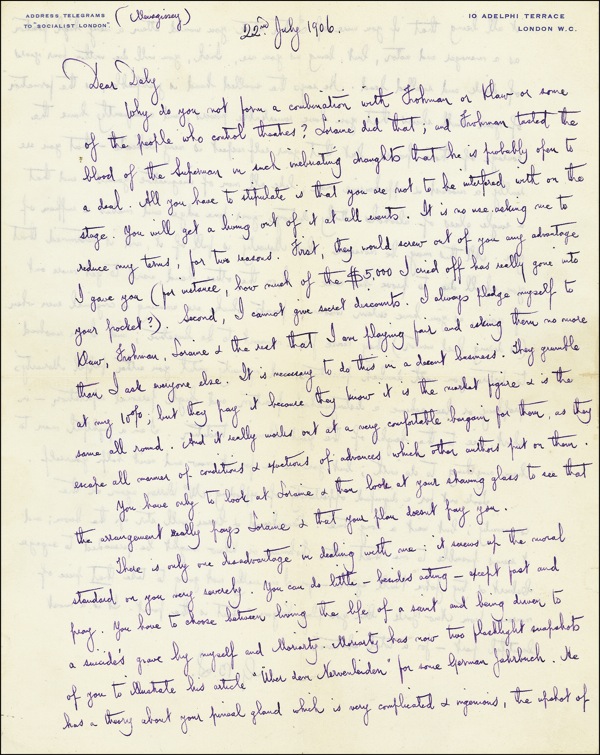 ADDRESS TELEGRAMS
TO "SOCIALIST LONDON".
(Menagincy)
10 ADELPHI TERRACE
LONDON W.C.
22nd July 1906.
Dear Daly
Why do you not form a combination with Frohman or Klaw or some
of the people who control theatres? Loraine did that; and Frohman tasted the
blood of the Superman in such inebriating draughts that he is probably open to
a deal. All you have to stipulate is that you are not to be interfered with on the
stage. You will get a living out of it at all events. It is no use asking me to
reduce my terms, for two reasons. First, they would screw out of you any advantage
I gave you (for instance how much of the $5,000 I cried off has really gone into
your pocket?). Second, I cannot give secret discounts. I always pledge myself to
Klaw, Frohman, Loraine & the rest that I am playing fair and asking them no more
than I ask everyone else. It is necessary to do this in a decent business. They grumble
at my 10%; but they pay it because they know it is the market figure & is the
same all round. And it really works out at a very comfortable bargain for them, as they
escape all manner of conditions & exactions of advances which other authors put on them.
You have only to look at Loraine & then look at your shaving glass to see that
the arrangement really pays Loraine & that your plan doesn't pay you.
There is only one disadvantage in dealing with me: it screws up the moral
standard on you very severely. You can do little – besides acting – except fast and
pray. You have to choose between living the life of a saint and being driven to
a suicide's grave by myself and Moriarty. Moriarty has now two flashlight snapshots
of you to illustrate his article "Über dem Nervenleiden" for some German Jahrbuch. He
has a theory about your pineal gland which is very complicated & ingenious, the upshot of